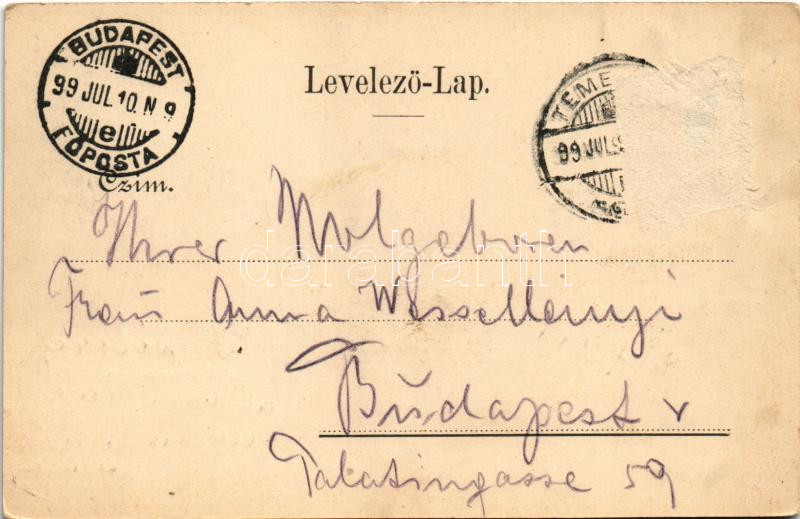 BUDAPEST
99 JUL 10. N 9
e
FŐPOSTA
Levelező-Lap.
TEME
99 JUL
Czim.
Ihrer Wolgeboren
Frau Anna Wesselényi
darabanth
Budapest V
Palatingasse 59